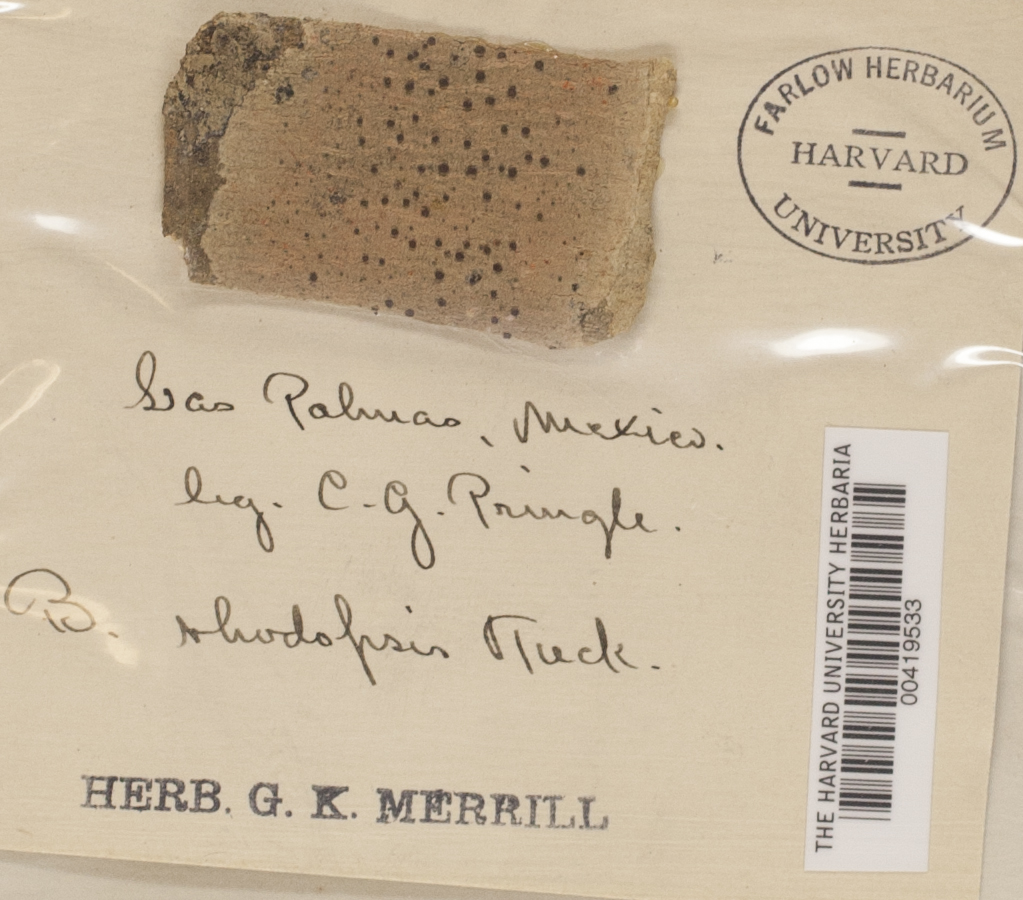 FARLOW HERBARIUM
HARVARD
UNIVERSITY
Las Palmas, Mexico.
leg. C. G. Pringle.
B. rhodopsis Tuck.
HERB. G. K. MERRILL
THE HARVARD UNIVERSITY HERBARIA
00419533